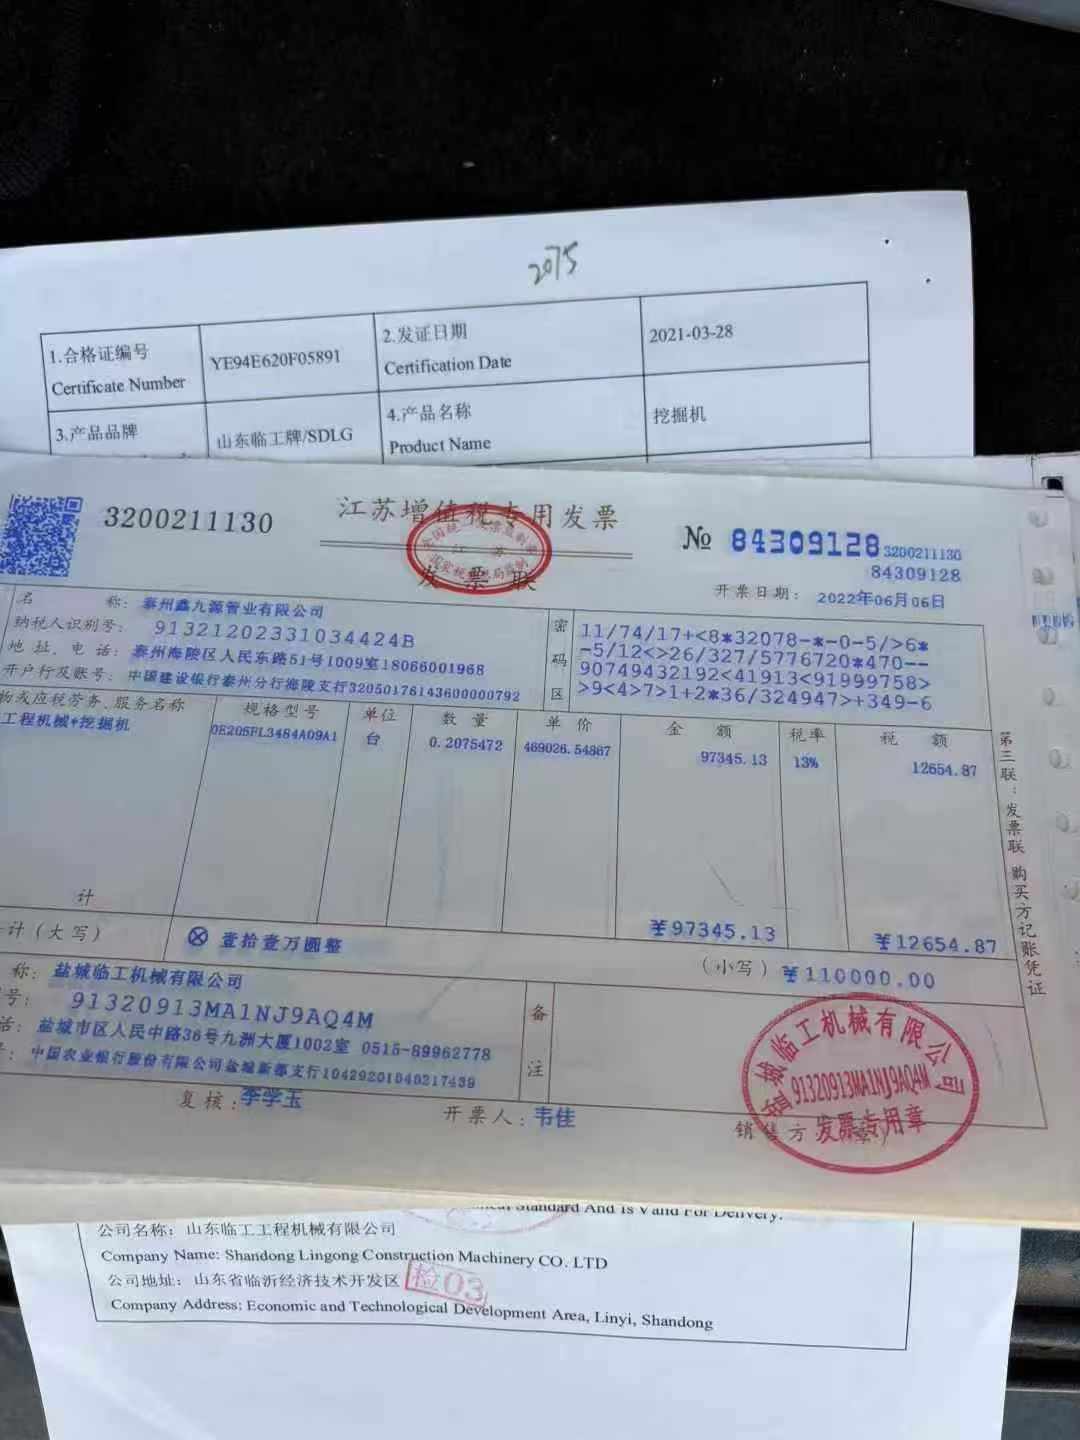 2075
1.合格证编号
Certificate Number
YE94E620F05891
2.发证日期
Certification Date
2021-03-28
3.产品品牌
山东临工牌/SDLG
4.产品名称
Product Name
挖掘机
3200211130
江苏增值税专用发票
发票联
全国统一发票监制章
江苏
国家税务总局监制
№ 84309128
3200211130
84309128
开票日期: 2022年06月06日
名 称: 泰州鑫九源管业有限公司
纳税人识别号: 91321202331034424B
地 址、电 话: 泰州海陵区人民东路51号1009室18066001968
开户行及账号: 中国建设银行泰州分行海陵支行32050176143600000792
密码区
11/74/17+<8*32078-*-0-5/>6*
-5/12<>26/327/5776720*470--
90749432192<41913<91999758>
>9<4>7>1+2*36/324947>+349-6
物或应税劳务、服务名称 规格型号 单位 数 量 单 价 金 额 税率 税 额
工程机械*挖掘机 0E205FL3484A09A1 台 0.2075472 469026.54867 97345.13 13% 12654.87
计 ¥97345.13 ¥12654.87
计(大写) ⊗ 壹拾壹万圆整 (小写) ¥110000.00
称: 盐城临工机械有限公司
号: 91320913MA1NJ9AQ4M
话: 盐城市区人民中路36号九洲大厦1002室 0515-89962778
号: 中国农业银行股份有限公司盐城新都支行10429201040217439
备注
复核: 李学玉
开票人: 韦佳
销售方:(章)
盐城临工机械有限公司
91320913MA1NJ9AQ4M
发票专用章
第三联:发票联 购买方记账凭证
Standard And Is Valid For Delivery.
公司名称: 山东临工工程机械有限公司
Company Name: Shandong Lingong Construction Machinery CO. LTD
公司地址: 山东省临沂经济技术开发区
检03
Company Address: Economic and Technological Development Area, Linyi, Shandong